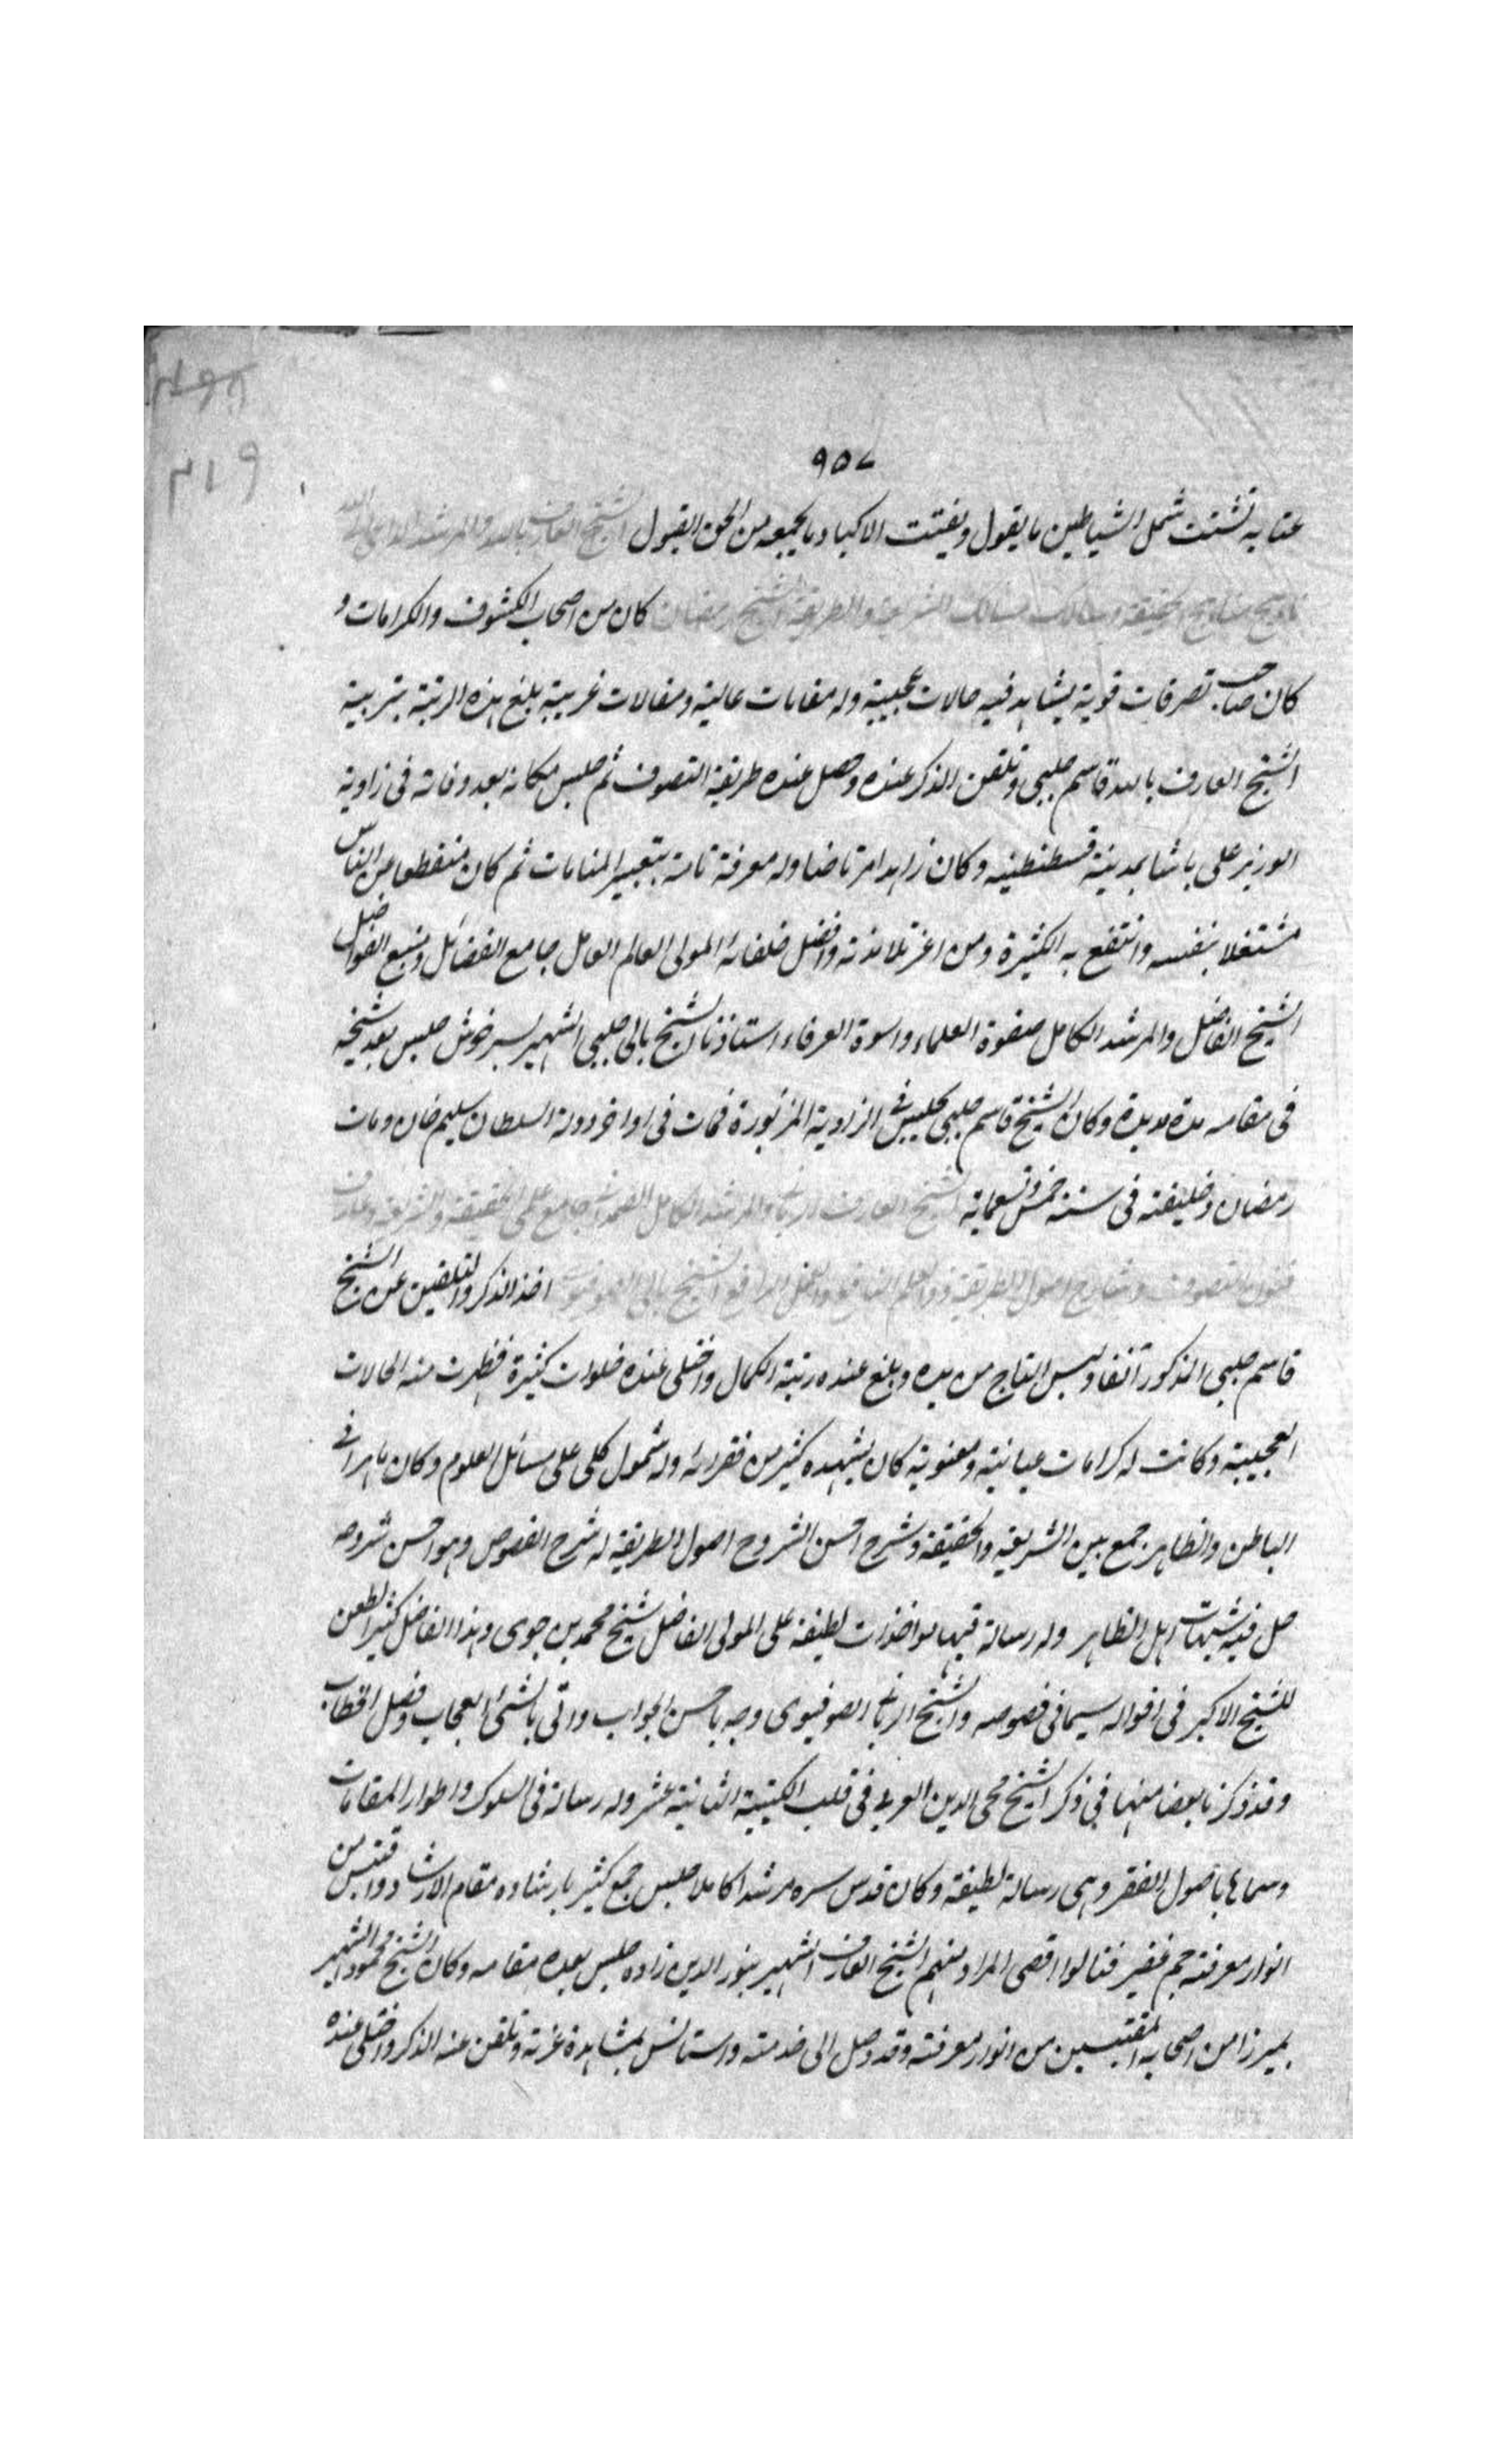 ٩٥٧
٢١٩
عتابه تشتت شمل الشياطين ما يقول ويفتت الاكباد ما يجيبه من الحق القبول الشيخ العارف بالله والمرشد الداعى الى الله
مناهج الحقيقة وسالك مسالك الشريعة والطريقة الشيخ رمضان كان من اصحاب الكشوف والكرامات و
كان صاحب تصرفات قوية يشاهد فيه حالات عجيبة وله مقامات عالية ومقالات غريبة بلغ هذه الرتبة بتربية
الشيخ العارف بالله قاسم چلبى وتلقن الذكر عنده وحصل عنده طريقة التصوف ثم جلس مكانه بعد وفاته فى زاوية
الوزير على پاشا بمدينة قسطنطنيه وكان زاهدا مرتاضا وله معرفة تامة بتعبير المنامات ثم كان منقطعا عن الناس
مشتغلا بنفسه وانتفع به الكثيرة ومن اعز تلامذته وافضل خلفائه المولى العالم العامل جامع الفضائل ومنبع الفواضل
الشيخ الفاضل والمرشد الكامل صفوة العلماء واسوة العرفاء استاذنا الشيخ بالى چلبى الشهير بسرخوش جلس بعد شيخه
فى مقامه مدة مديدة وكان الشيخ قاسم چلبى يجلس فى الزاوية المزبورة فمات فى اواخر دولة السلطان سليم خان ومات
رمضان وخليفته فى سنة خمس وتسعماية الشيخ العارف الربانى والمرشد الكامل الصمدانى جامع علمى الحقيقة والشريعة وعارف
فنون التصوف وشارح اصول الطريقة ذو العلم النافع والعمل الرافع الشيخ بالى الصوفيوى اخذ الذكر والتلقين عن الشيخ
قاسم چلبى المذكور آنفا ولبس التاج من يده وبلغ عنده رتبة الكمال واختلى عنده خلوات كثيرة فظهرت منه الحالات
العجيبة وكانت له كرامات عيانية ومعنوية كان يشهده كثير من فقرائه وله شمول كلى على مسائل العلوم وكان ماهرا فى
الباطن والظاهر جمع بين الشريعة والحقيقة وشرح احسن الشروح اصول الطريقة له شرح الفصوص وهو احسن شروحه
حل فيه شبهات اهل الظاهر وله رسالة فيها مواخذات لطيفة على المولى الفاضل شيخ محمد بن جوى وهذا الفاضل كثير الطعن
للشيخ الاكبر فى اقواله سيما فى فصوصه والشيخ الربانى الصوفيوى وجه باحسن الجواب واتى بالشئ العجاب وفصل الخطاب
وقد ذكرنا بعضا منها فى ذكر الشيخ محى الدين العربى فى قلب الكتيبة الثانية عشر وله رسالة فى السلوك واطوار المقامات
وسماها باصول الفقر وهى رسالة لطيفة وكان قدس سره مرشدا كاملا جلس جمع كثير بارشاده مقام الارشاد واقتبس من
انوار معرفته جم غفير فنالوا اقصى المراد منهم الشيخ العارف الشهير بنور الدين زاده جلس بعده مقامه وكان الشيخ محمود الشهير
بميرزا من اصحابه المقتبسين من انوار معرفته وقد وصل الى خدمته واستانس بمشاهدة غرته وتلقن عنه الذكر واختلى عنده